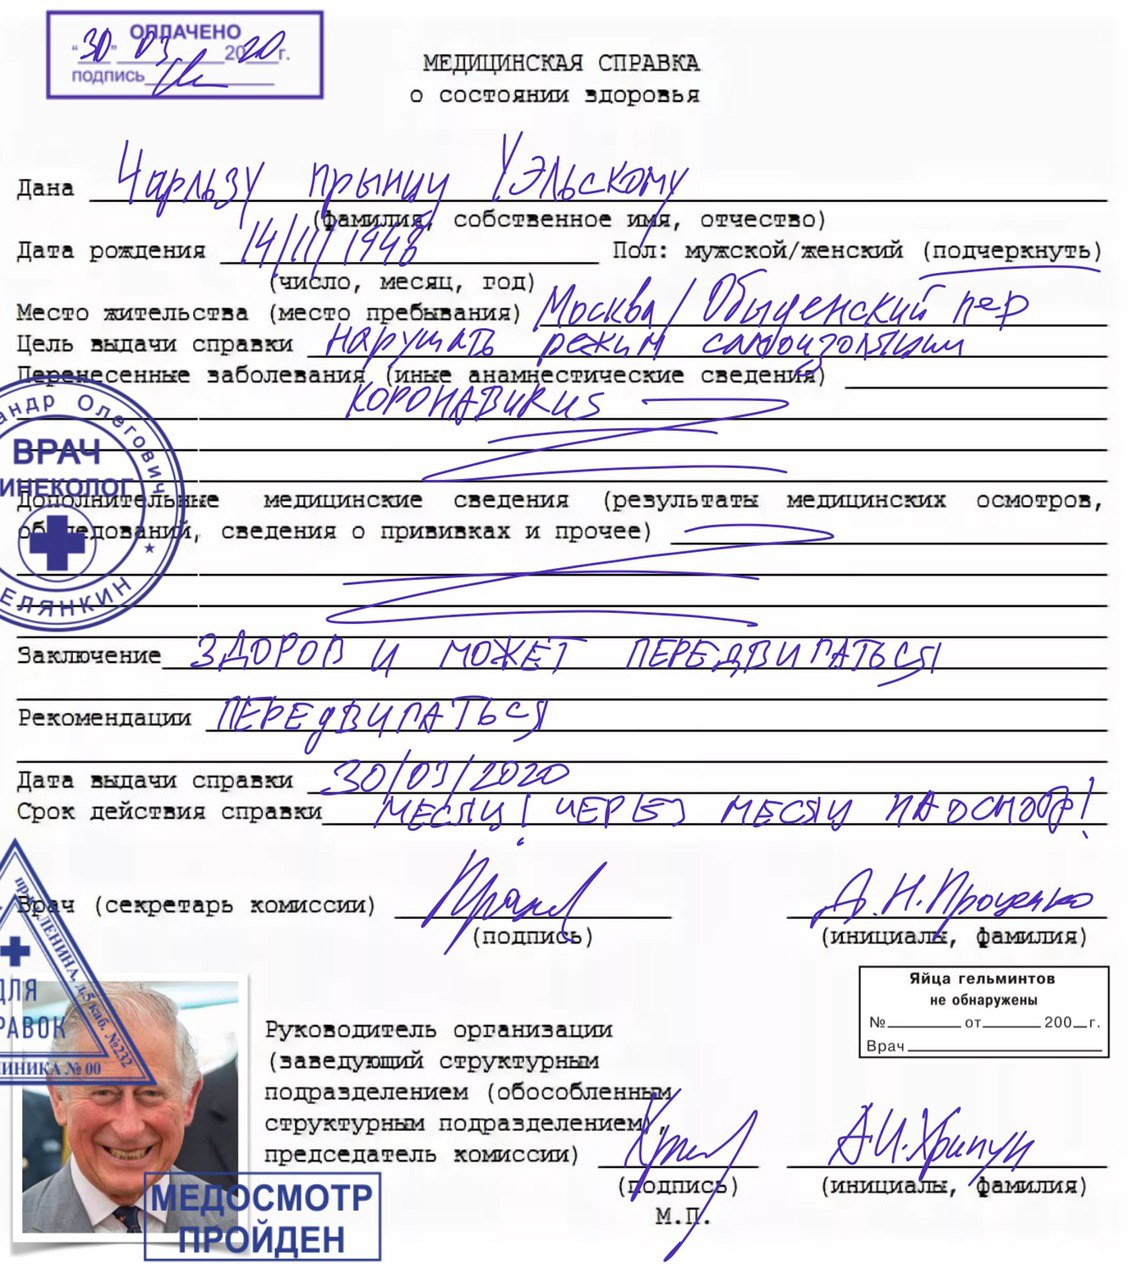 ОПЛАЧЕНО
"30" 03 2020г.
подпись
МЕДИЦИНСКАЯ СПРАВКА
о состоянии здоровья
Дана Чарльзу прынцу Уэльскому
(фамилия, собственное имя, отчество)
Дата рождения 14/11/1948 Пол: мужской/женский (подчеркнуть)
(число, месяц, год)
Место жительства (место пребывания) Москва/Обыденский пер
Цель выдачи справки нарушать режим самоизоляции
Перенесенные заболевания (иные анамнестические сведения)
КОРОНАВИRUS
андр Олегович
ВРАЧ
ИНЕКОЛОГ
ЕЛЯНКИН
Дополнительные медицинские сведения (результаты медицинских осмотров,
обследований, сведения о прививках и прочее)
Заключение ЗДОРОВ И МОЖЕТ ПЕРЕДВИГАТЬСЯ
Рекомендации ПЕРЕДВИГАТЬСЯ
Дата выдачи справки 30/03/2020
Срок действия справки МЕСЯЦ! ЧЕРЕЗ МЕСЯЦ НА ОСМОТР!
Врач (секретарь комиссии) Д.Н.Проценко
(подпись) (инициалы, фамилия)
пр. ЛЕНИНА, д.5 каб. №232
ДЛЯ
РАВОК
ИНИКА № 00
Яйца гельминтов
не обнаружены
№ от 200 г.
Врач
Руководитель организации
(заведующий структурным
подразделением (обособленным
структурным подразделением),
председатель комиссии) А.И.Хрипун
(подпись) (инициалы, фамилия)
М.П.
МЕДОСМОТР
ПРОЙДЕН